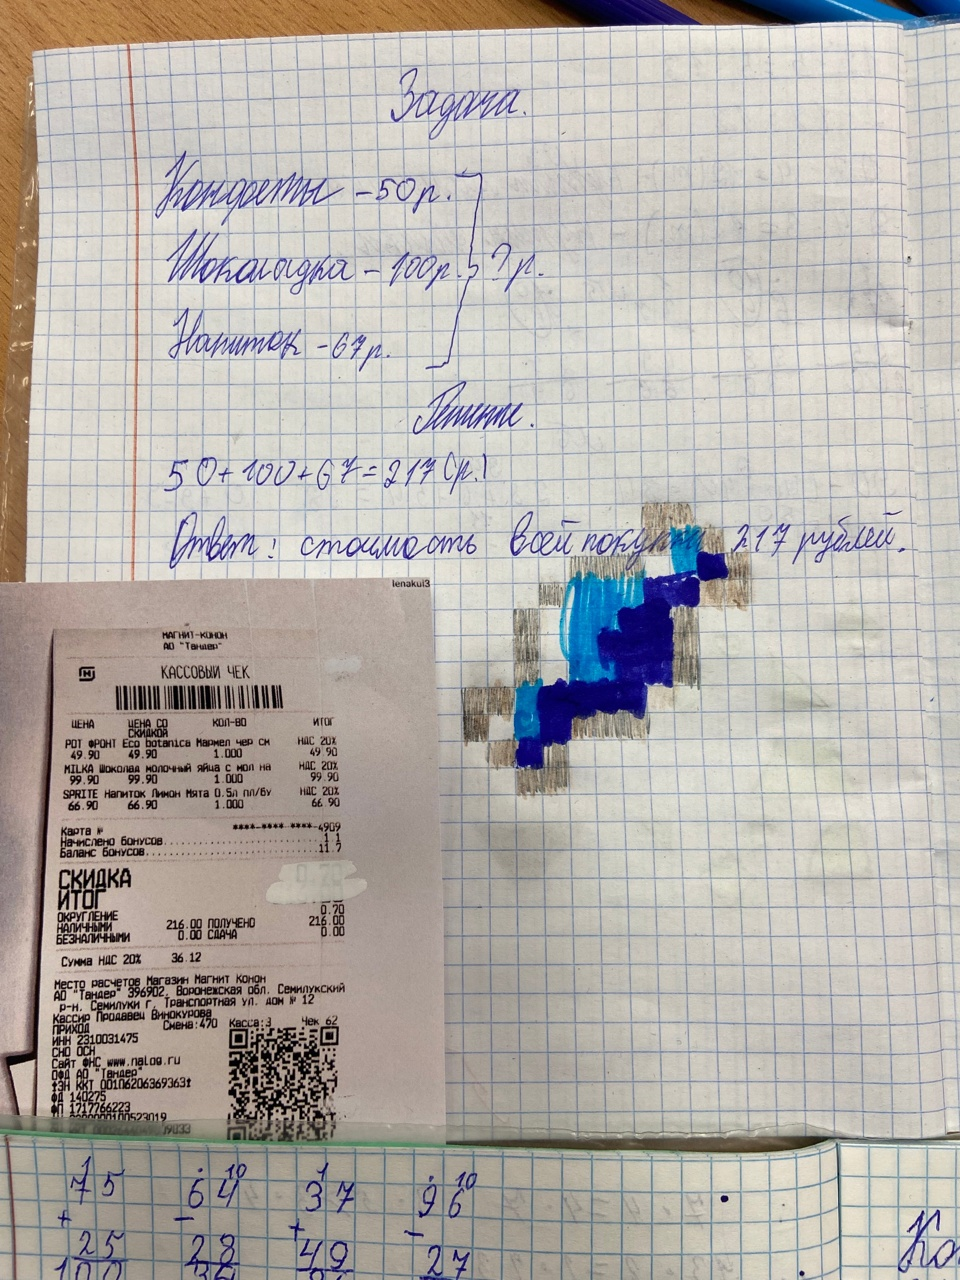 Задача.
Конфеты - 50 р.
Шоколадка - 100 р. ? р.
Напиток - 67 р.
Решение.
50 + 100 + 67 = 217 (р.)
Ответ: стоимость всей покупки 217 рублей.
lenakul3
МАГНИТ-КОНОН
АО "Тандер"
КАССОВЫЙ ЧЕК
ЦЕНА ЦЕНА СО СКИДКОЙ КОЛ-ВО ИТОГ
РОТ ФРОНТ Eco botanica Мармел чер см НДС 20%
49.90 49.90 1.000 49.90
MILKA Шоколад молочный яйца с мол на НДС 20%
99.90 99.90 1.000 99.90
SPRITE Напиток Лимон Мята 0.5л пл/бу НДС 20%
66.90 66.90 1.000 66.90
Карта № ****-****-****-4909
Начислено бонусов 1.1
Баланс бонусов 11.7
СКИДКА
ИТОГ
ОКРУГЛЕНИЕ 0.70
НАЛИЧНЫМИ 216.00 ПОЛУЧЕНО 216.00
БЕЗНАЛИЧНЫМИ 0.00 СДАЧА 0.00
Сумма НДС 20% 36.12
Место расчетов Магазин Магнит Конон
АО "Тандер" 396902, Воронежская обл. Семилукский
р-н, Семилуки г, Транспортная ул. дом № 12
Кассир Продавец Винокурова
ПРИХОД Смена:470 Касса:3 Чек 62
ИНН 2310031475
СНО ОСН
Сайт ФНС www.nalog.ru
ОФД АО "Тандер"
ФД 140275
ФП 1717766223
1 10 1 10
75 64 37 96
+ - + -
25 28 49 27
100
Ко